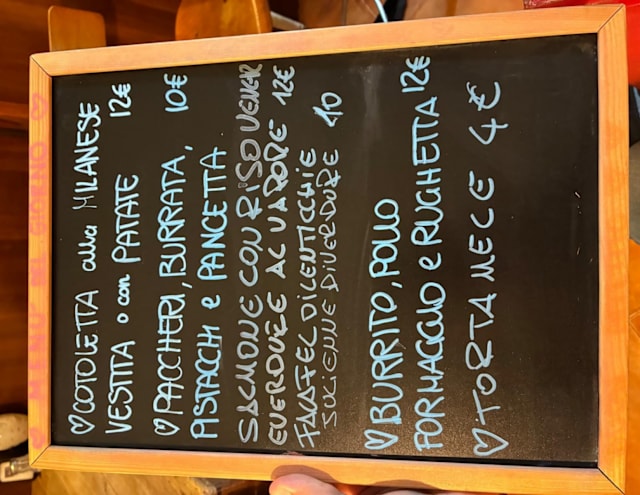 ♡ MENU DEL GIORNO ♡
♡ COTOLETTA alla MILANESE
VESTITA o con PATATE 12€
♡ PACCHERI, BURRATA, 10€
PISTACCHI e PANCETTA
SALMONE CON RISO VENER
E VERDURE AL VAPORE 12€
FALAFEL DI LENTICCHIE
JULIENNE DI VERDURE 10
♡ BURRITO, POLLO
FORMAGGIO e RUGHETTA 12€
♡ TORTA MELE 4€